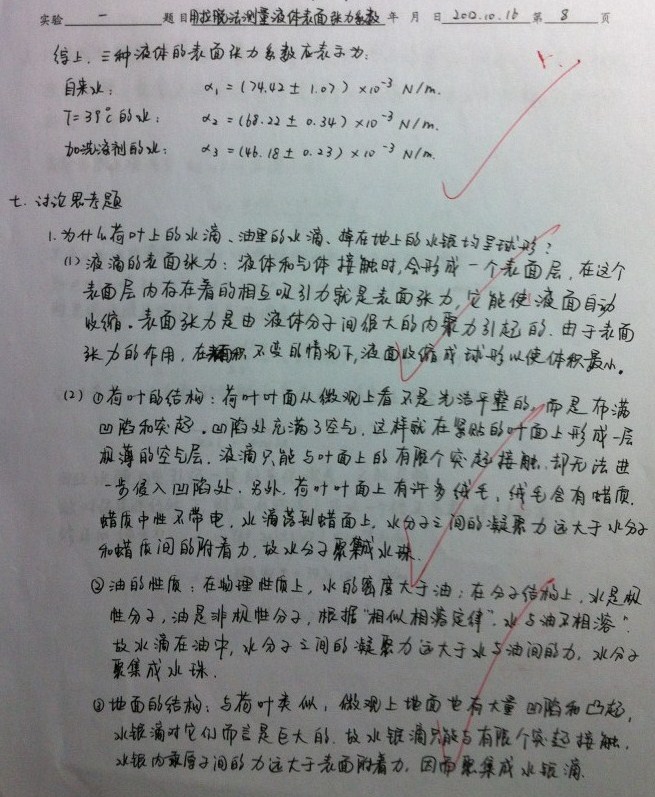 实验 一 题目 用拉脱法测量液体表面张力系数 年 月 日 2012.10.16 第 8 页
综上,三种液体的表面张力系数应表示为:
自来水: α₁ = (74.42 ± 1.07) ×10⁻³ N/m.
T=39℃的水: α₂ = (68.22 ± 0.34) ×10⁻³ N/m.
加洗洁剂的水: α₃ = (46.18 ± 0.23) ×10⁻³ N/m.
七. 讨论思考题
1. 为什么荷叶上的水滴、油里的水滴、掉在地上的水银均呈球形?
(1) 液滴的表面张力:液体和气体接触时,会形成一个表面层,在这个
表面层内存在着的相互吸引力就是表面张力,它能使液面自动
收缩。表面张力是由液体分子间很大的内聚力引起的.由于表面
张力的作用,在面积不变的情况下,液面收缩成球形以使体积最小。
(2) ①荷叶的结构:荷叶叶面从微观上看不是光洁平整的,而是布满
凹陷和突起.凹陷处充满了空气,这样就在紧贴的叶面上形成一层
极薄的空气层.液滴只能与叶面上的有限个突起接触,却无法进
一步侵入凹陷处.另外,荷叶叶面上有许多绒毛,绒毛含有蜡质,
蜡质中性不带电,水滴落到蜡面上,水分子之间的凝聚力远大于水分子
和蜡质间的附着力,故水分子聚集成水珠.
②油的性质:在物理性质上,水的密度大于油;在分子结构上,水是极
性分子,油是非极性分子,根据“相似相溶定律”,水与油不相溶".
故水滴在油中,水分子之间的凝聚力远大于水与油间的力,水分子
聚集成水珠.
③地面的结构:与荷叶类似,微观上地面也有大量凹陷和凸起,
水银滴对它们而言是巨大的.故水银滴只能与有限个突起接触.
水银内汞原子间的力远大于表面附着力,因而聚集成水银滴.